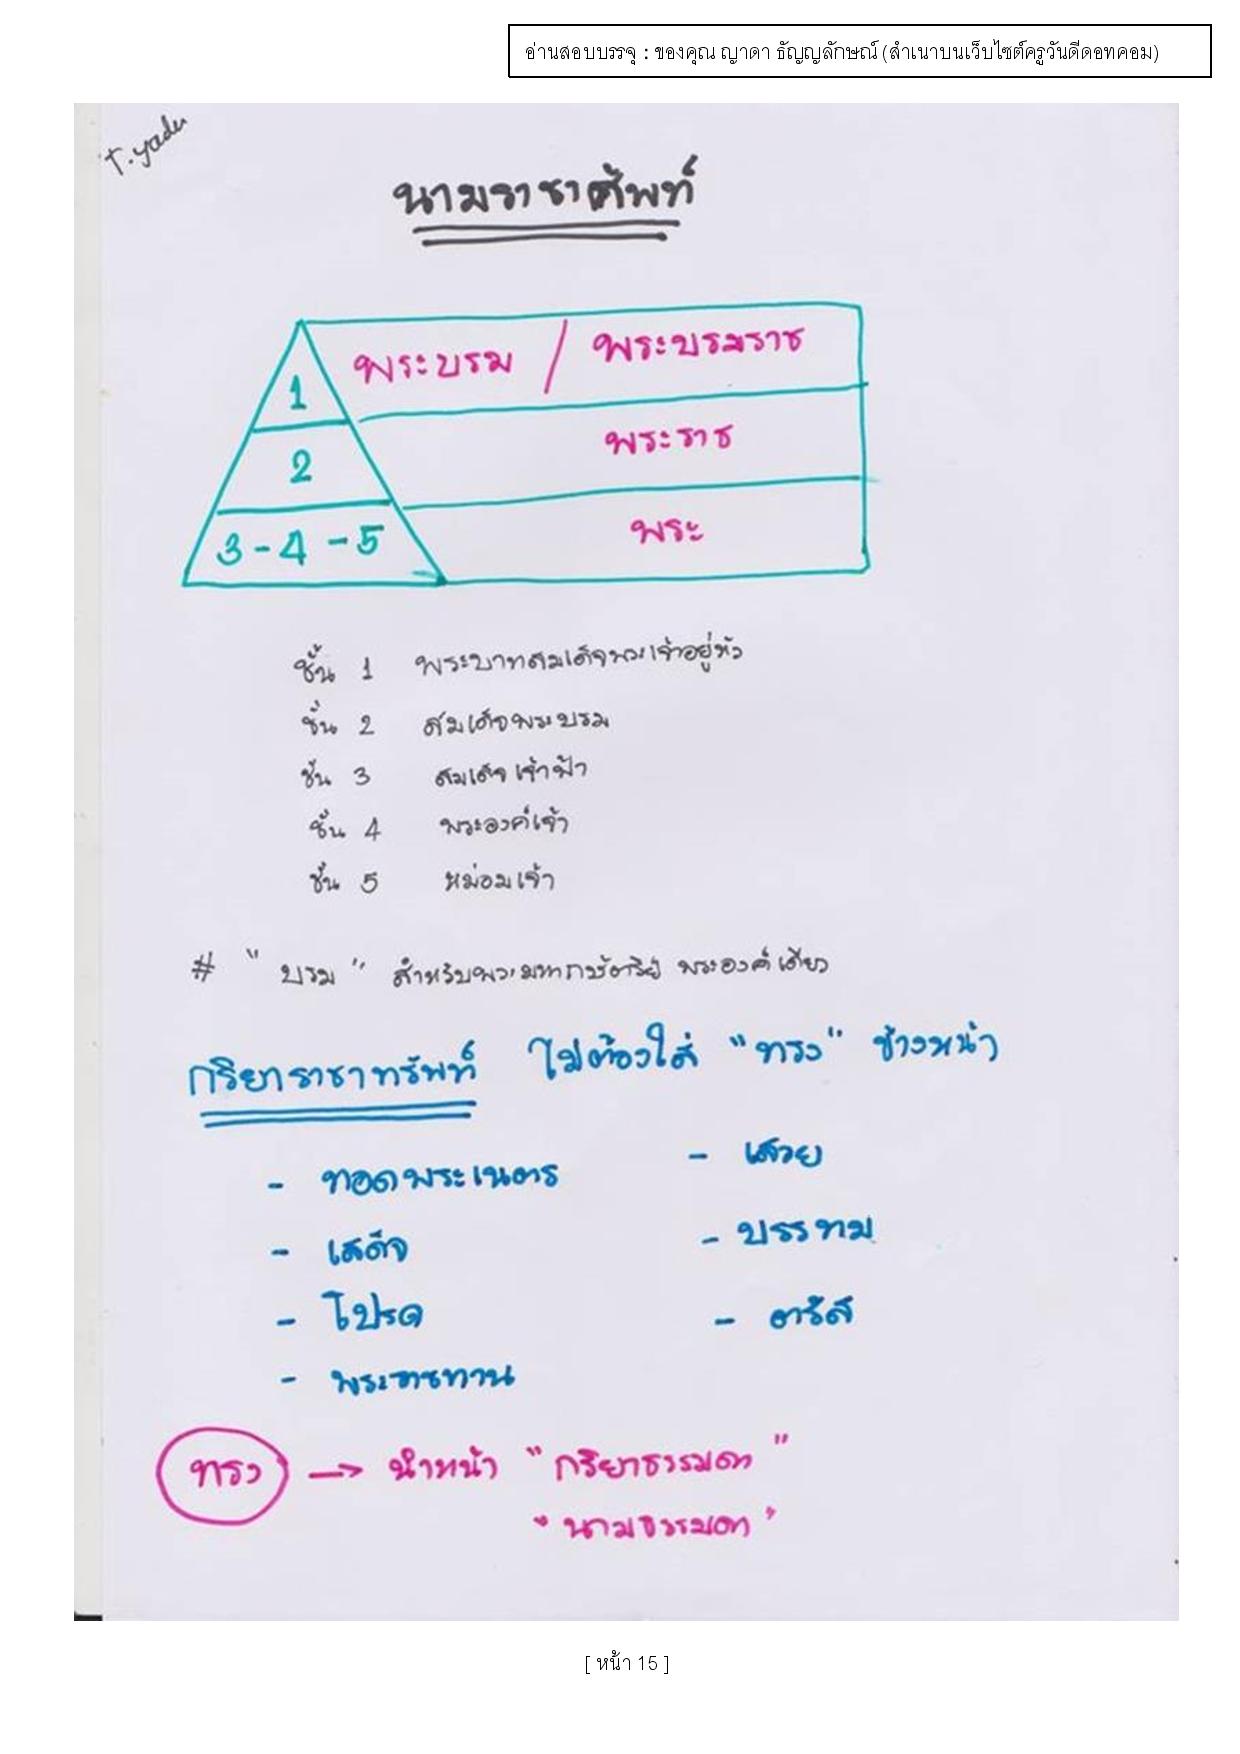 อ่านสอบบรรจุ : ของคุณ ญาดา ธัญญลักษณ์ (สำเนาบนเว็บไซต์ครูวันดีดอทคอม)
T.yada
นามราชาศัพท์
1 พระบรม / พระบรมราช
2 พระราช
3 - 4 - 5 พระ
ชั้น 1 พระบาทสมเด็จพระเจ้าอยู่หัว
ชั้น 2 สมเด็จพระบรม
ชั้น 3 สมเด็จเจ้าฟ้า
ชั้น 4 พระองค์เจ้า
ชั้น 5 หม่อมเจ้า
# "บรม" สำหรับพระมหากษัตริย์ พระองค์เดียว
กริยาราชาทรัพท์ ไม่ต้องใส่ "ทรง" ข้างหน้า
- ทอดพระเนตร - เสวย
- เสด็จ - บรรทม
- โปรด - ตรัส
- พระราชทาน
ทรง → นำหน้า "กริยาธรรมดา"
"นามธรรมดา"
[ หน้า 15 ]